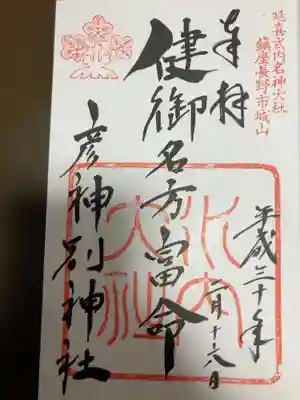 延喜式内名神大社
鎮座長野市城山
奉拝
平成三十年
二月十六日
健御名方富命
彦神別神社
水内
大社